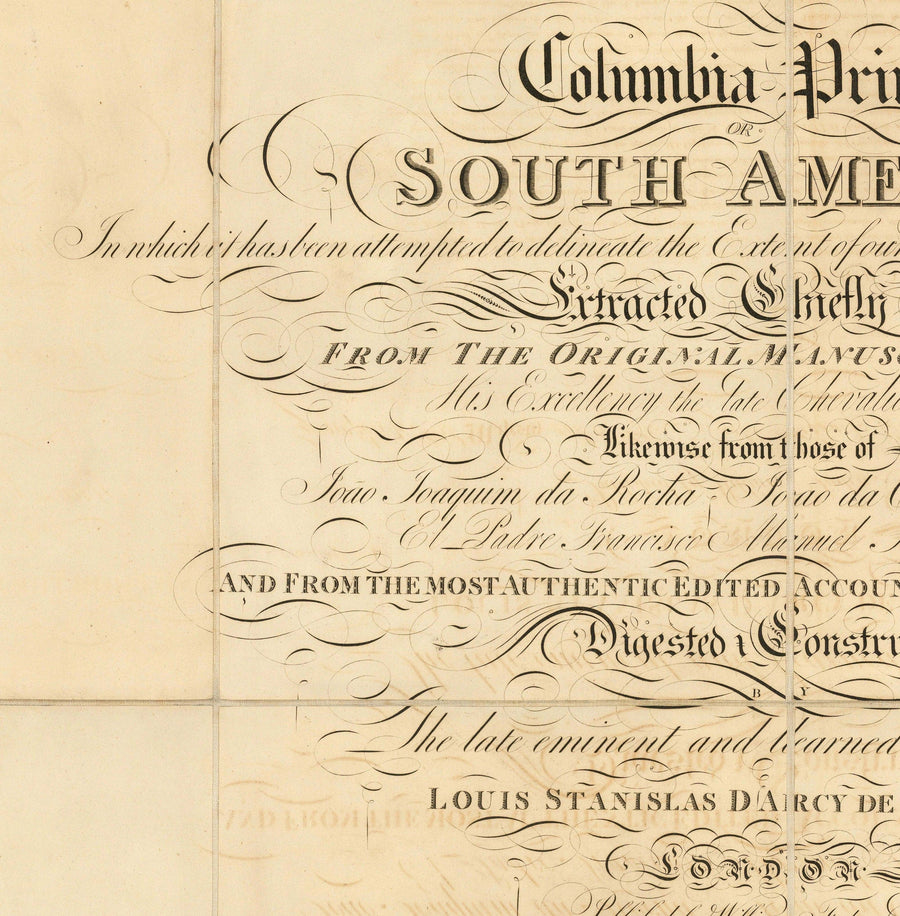 Columbia Pri
OR
SOUTH AME
In which it has been attempted to delineate the Extent of our
Extracted Chiefly
FROM THE ORIGINAL MANUSC
His Excellency the late Chevali
Likewise from those of
João Joaquim da Rocha João da C
El Padre Francisco Manuel
AND FROM THE MOST AUTHENTIC EDITED ACCOUN
Digested & Constru
BY
The late eminent and learned
LOUIS STANISLAS D'ARCY DE
LONDON